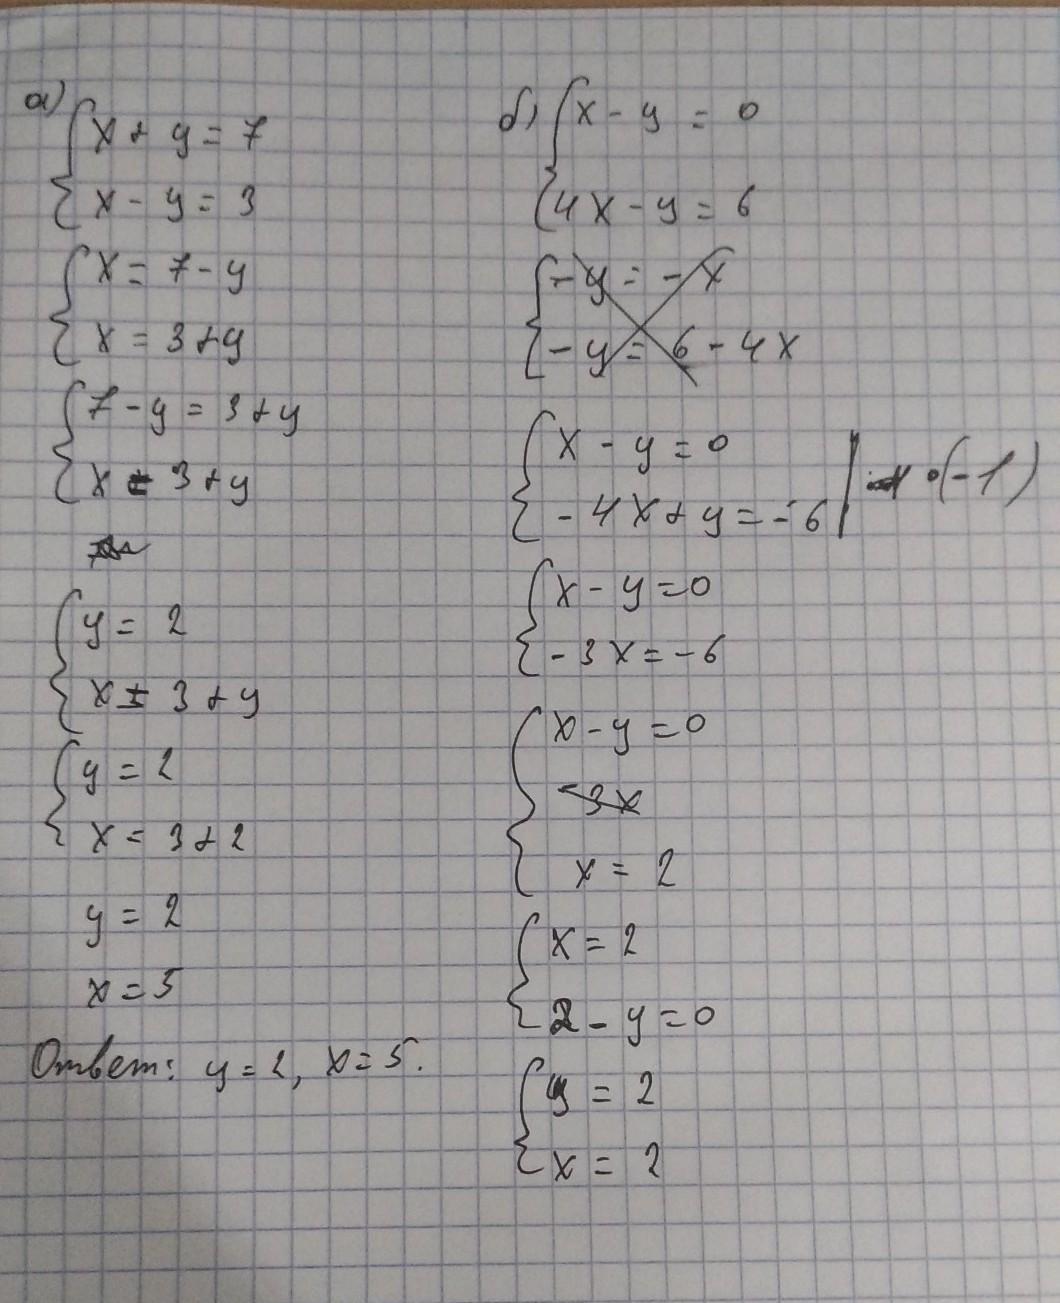 а)
x + y = 7
x - y = 3
x = 7 - y
x = 3 + y
7 - y = 3 + y
x = 3 + y
y = 2
x = 3 + y
y = 2
x = 3 + 2
y = 2
x = 5
Ответ: y = 2, x = 5.
б)
x - y = 0
4x - y = 6
- y = - x
- y = 6 - 4x
x - y = 0
- 4x + y = - 6 | · (-1)
x - y = 0
- 3x = - 6
x - y = 0
-3x
x = 2
x = 2
2 - y = 0
y = 2
x = 2